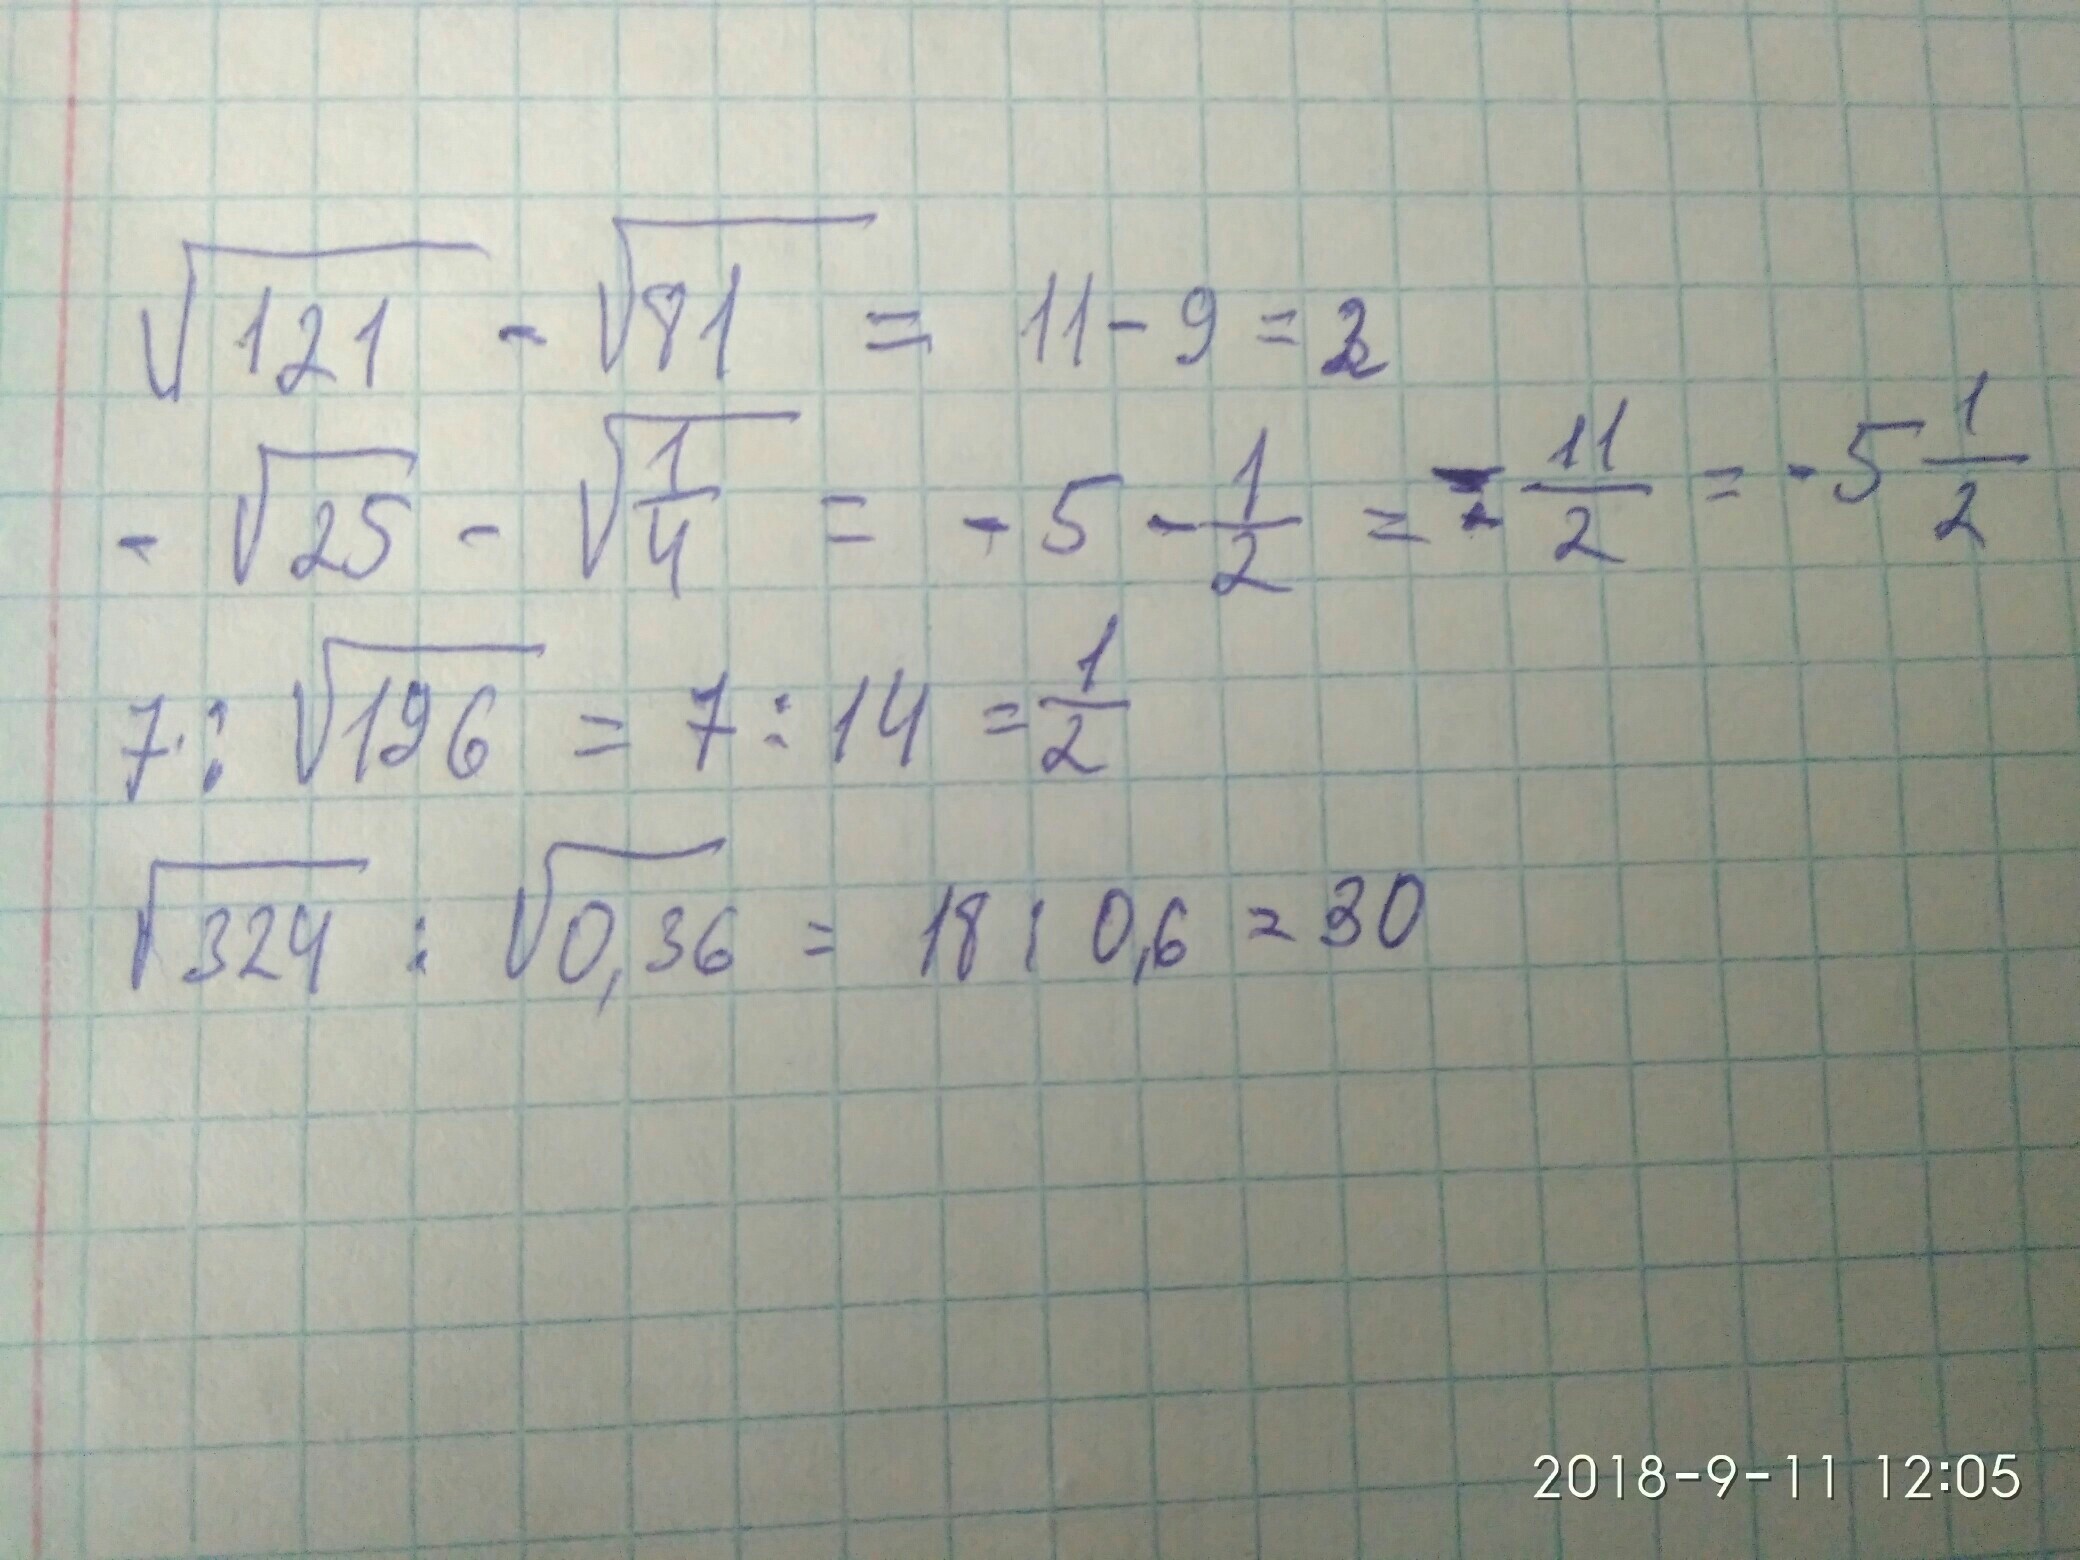 √121 - √81 = 11 - 9 = 2
- √25 - √1/4 = - 5 - 1/2 = - 11/2 = - 5 1/2
7 : √196 = 7 : 14 = 1/2
√324 : √0,36 = 18 : 0,6 = 30
2018-9-11 12:05